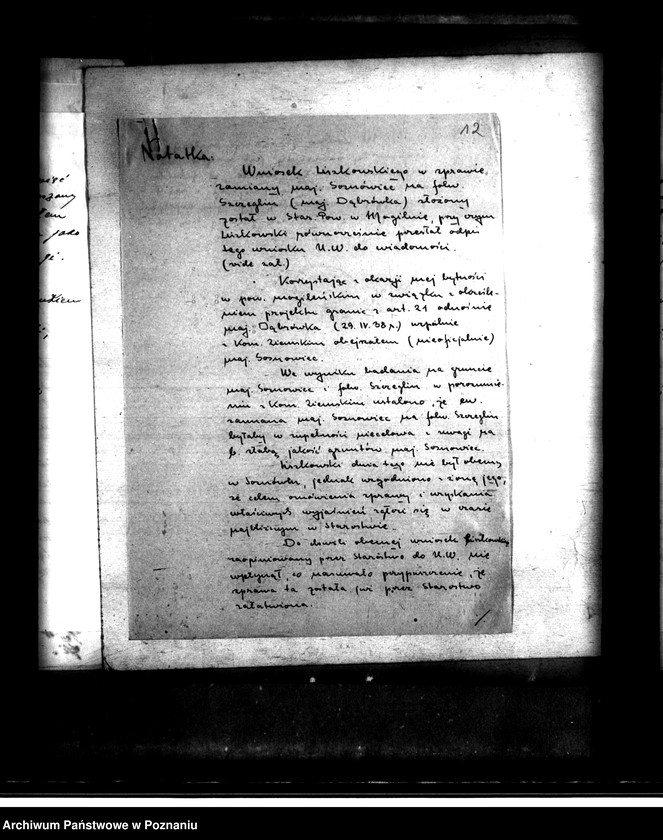 12
Notatka.
Wniosek Liszkowskiego w sprawie
zamiany maj. Sosnówiec na folw.
Szczeglin (maj. Dąbrówka) złożony
został w Star. Pow. w Mogilnie, przy czym
Liszkowski równocześnie przesłał odpis
tego wniosku U.W. do wiadomości.
(vide zał.)
Korzystając z okazji mej bytności
w pow. mogileńskim w związku z określe-
niem projektu granic z art. 21 odnośnie
maj. Dąbrówka (29.IV.38 r.) wspólnie
z Kom. Ziemskim obejrzałem (nieoficjalnie)
maj. Sosnowiec.
We wyniku badania na gruncie
maj. Sosnowiec i folw. Szczeglin w porozumie-
niu z Kom. Ziemskim ustalono, że ew.
zamiana maj. Sosnowiec na folw. Szczeglin
byłaby w zupełności niecelowa z uwagi na
b. słabą jakość gruntów maj. Sosnowiec.
Liszkowski dnia tego nie był obecny
w Sosnówcu, jednak uzgodniono z żoną jego,
że celem omówienia sprawy i uzyskania
właściwych wyjaśnień zgłosi się w czasie
najbliższym w Starostwie.
Do chwili obecnej wniosek Liszkowskiego
zaopiniowany przez Starostwo do U.W. nie
wpłynął, co nasuwało przypuszczenie, że
sprawa ta została już przez Starostwo
załatwiona.
Archiwum Państwowe w Poznaniu